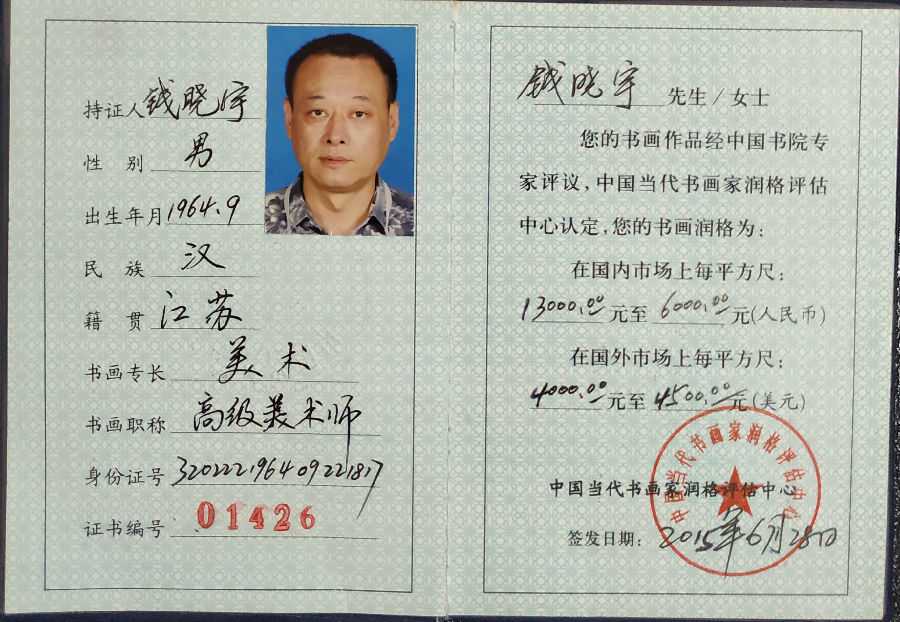 持证人 钱晓宇
性 别 男
出生年月 1964.9
民 族 汉
籍 贯 江苏
书画专长 美术
书画职称 高级美术师
身份证号 320222196409221817
证书编号 01426
钱晓宇 先生/女士
您的书画作品经中国书院专
家评议,中国当代书画家润格评估
中心认定,您的书画润格为:
在国内市场上每平方尺:
13000.00元至 6000.00元(人民币)
在国外市场上每平方尺:
4000.00元至 4500.00元(美元)
中国当代书画家润格评估中心
中国当代书画家润格评估中心
签发日期: 2015年6月28日